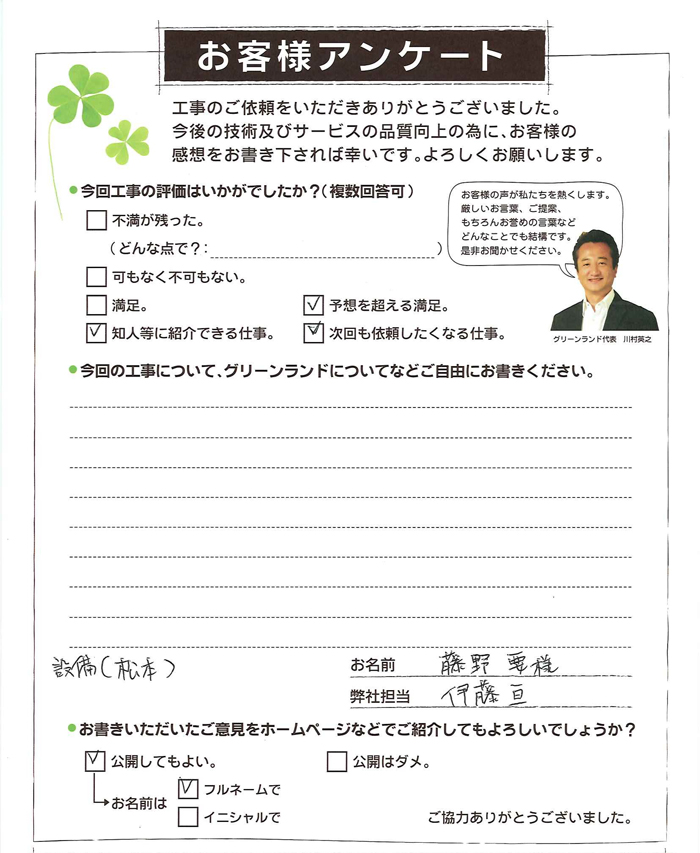 お客様アンケート
工事のご依頼をいただきありがとうございました。
今後の技術及びサービスの品質向上の為に、お客様の
感想をお書き下されば幸いです。よろしくお願いします。
今回工事の評価はいかがでしたか?(複数回答可)
不満が残った。
(どんな点で?:)
可もなく不可もない。
満足。
予想を超える満足。
知人等に紹介できる仕事。
次回も依頼したくなる仕事。
お客様の声が私たちを熱くします。
厳しいお言葉、ご提案、
もちろんお誉めの言葉など
どんなことでも結構です。
是非お聞かせください。
グリーンランド代表 川村英之
今回の工事について、グリーンランドについてなどご自由にお書きください。
設備(松本)
お名前 藤野 要様
弊社担当 伊藤 亘
お書きいただいたご意見をホームページなどでご紹介してもよろしいでしょうか?
公開してもよい。
公開はダメ。
お名前は
フルネームで
イニシャルで
ご協力ありがとうございました。